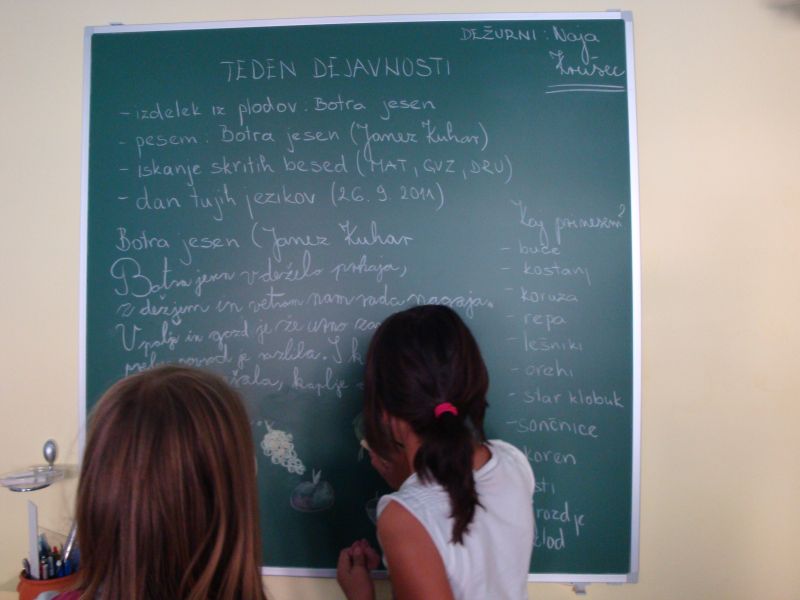 DEŽURNI: Naja
Krušec
TEDEN DEJAVNOSTI
- izdelek iz plodov: Botra jesen
- pesem: Botra jesen (Janez Kuhar)
- iskanje skritih besed (MAT, GVZ, DRU)
- dan tujih jezikov (26. 9. 2011)
Botra jesen (Janez Kuhar
Botra jesen v deželo prihaja,
z dežjem in vetrom nam rada nagaja.
V polje in gozd je že
je razlila.
kaplje
Kaj prinesem?
- buče
- kostanj
- koruza
- repa
- lešniki
- orehi
- star klobuk
- sončnice
koren